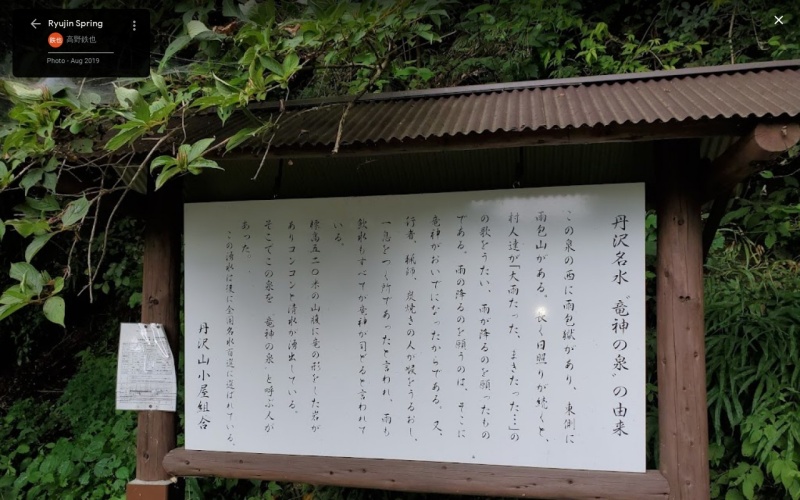 Ryujin Spring
鉄也
高野鉄也
Photo - Aug 2019
丹沢名水 “竜神の泉” の由来
この泉の西に雨包嶽があり、東側に
雨包山がある。長く日照りが続くと、
村人達が「大雨たった、まきたった…」の
の歌をうたい、雨が降るのを願ったもの
である。雨の降るのを願うのは、そこに
竜神がおいでになったからである。又、
行者、猟師、炭焼きの人が喉をうるおし、
一息をつく所であったと言われ、雨も
飲水もすべてが竜神が司どると言われて
いる。
標高五二〇米の山腹に竜の形をした岩が
ありコンコンと清水が湧出している。
そこでこの泉を 竜神の泉 と呼ぶ人が
あった。
この湧水は後に全国名水百選に選ばれている。
丹沢山小屋組合